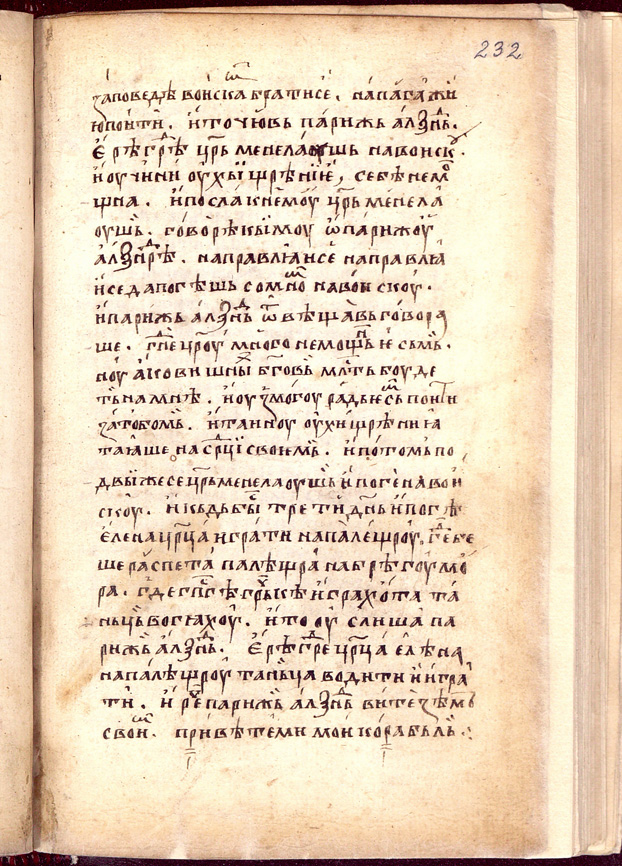 232
заповедѣ воиска братисе. нападажи
юпоити. и то чювь парижь алѯнь.
Є рѣ грѣ црь менелаоушь на воиск
и оучини оухыщрѣниѥ, себѣ нем
щна. и посла к немоу црь менела
оушь. говорѣкьімоу ѿ парижоу
алѯнрѣ. направлꙗисе направлꙗ
исе да погѣшь сомно на воискоу.
и парижь алѯнь ѿвѣщавь говорꙗ
ше. гне цроу много немощнь ѥсьмь.
ноу ако вишны бговь млть боуде
ть на мнѣ. и оузмогоу радь ѥсь поити
за тобомь. и таиноу оухищрѣниꙗ
таꙗше на срци своимь. и потомь по
двьіжесе црь менелаоушь и погѣ на вои
скоу. и кьдь бы трети днь и погѣ
єлена црца играти на палѣщроу, где бе
ше распета палѣщра на брѣгоу мо
ра. где гпсгѣ грькѣ играхота та
ньць вогꙗхоу. и то оу слиша па
рижь алѯнь. Є рѣ гре црца єлѣна
на палѣщроу таньца водити и игра
ти. и рче парижь алѯнь витезѣмь
свои. привѣтеми мои корабьль